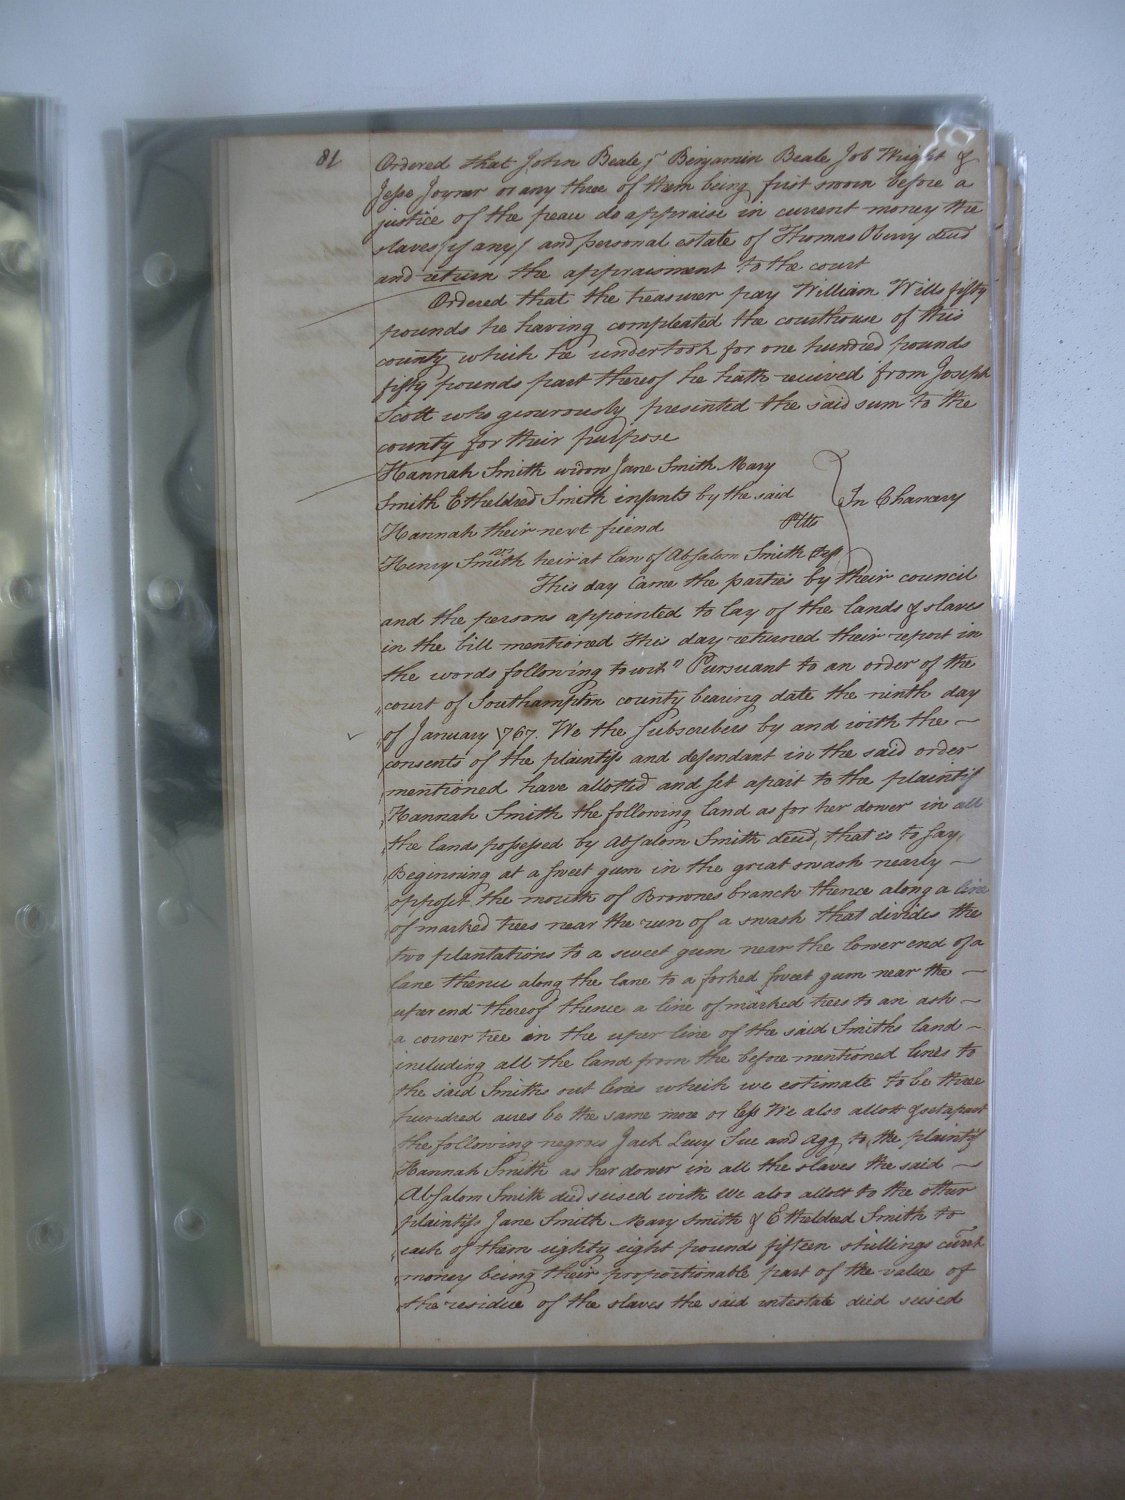 81
Ordered that John Beale jr Benjamin Beale Job Wright &
Jesse Joyner or any three of them being first sworn before a
justice of the peace do appraise in current money the
slaves (if any) and personal estate of Thomas Oberry decd
and return the appraisment to the court
Ordered that the treasurer pay William Wills fifty
pounds he having compleated the courthouse of this
county which he undertook for one hundred pounds
fifty pounds part thereof he hath received from Joseph
Scott who generously presented the said sum to the
county for their purpose
Hannah Smith widow Jane Smith Mary
Smith Etheldred Smith infants by the said
Hannah their next friend Plts
In Chancery
vs
Henry Smith heir at law of Absalom Smith Deft
This day Came the parties by their council
and the persons appointed to lay of the lands & slaves
in the bill mentioned this day returned their report in
the words following to wit " Pursuant to an order of the
" court of Southampton county bearing date the ninth day
" of January 1767. We the Subscribers by and with the —
consents of the plaintifs and defendant in the said order
mentioned have allotted and set apart to the plaintif
Hannah Smith the following land as for her dower in all
the lands possessed by Absalom Smith decd, that is to say,
Beginning at a sweet gum in the great swash nearly —
opposit the mouth of Brownes branch thence along a line
of marked trees near the run of a swash that divides the
two plantations to a sweet gum near the lower end of a
lane thence along the lane to a forked sweet gum near the —
uper end thereof thence a line of marked trees to an ash —
a corner tree in the uper line of the said Smiths land —
including all the land from the before mentioned lines to
the said Smiths out lines which we estimate to be three
hundred acres be the same more or less We also allott & set apart
the following negroes Jack Lucy Sue and Agg to the plaintif
Hannah Smith as her dower in all the slaves the said —
Absalom Smith died seised with We also allott to the other
plaintifs Jane Smith Mary Smith & Etheldred Smith to
each of them eighty eight pounds fifteen shillings curnt
money being their proportionable part of the value of
the residue of the slaves the said intestate died seised